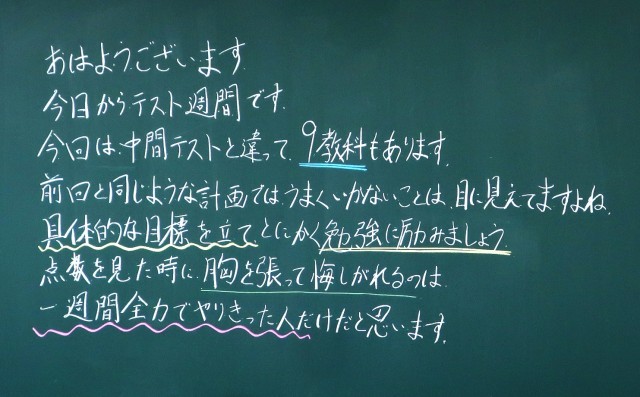 おはようございます
今日からテスト週間です.
今回は中間テストと違って、9教科もあります.
前回と同じような計画ではうまくいかないことは、目に見えてますよね.
具体的な目標を立てとにかく勉強に励みましょう.
点数を見た時に胸を張って悔しがれるのは
一週間全力でやりきった人だけだと思います.